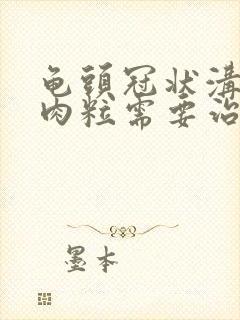 龟頭冠状溝
肉粒需要治
墨本